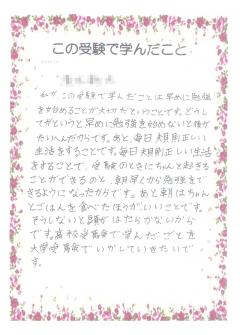 この受験で学んだこと
私がこの受験で学んだことは早めに勉強
を始めることが大切だということです。どうし
てかというと早めに勉強を始めないと後が
たいへんだからです。あと、毎日規則正しい
生活をすることです。毎日規則正しい生活
をすることで、受験のときにちゃんと起きる
ことができるのと、朝早くから勉強をで
きるようになったからです。あと朝はちゃん
とごはんを食べたほうがいいことです。
そうしないと頭がはたらかないから
です。高校受験で学んだことを
大学受験でいかしていきたいで
す。